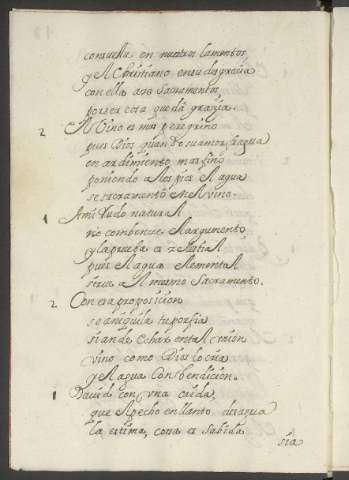 consuella en nuestros lamentos
y Al Christiano en su desgracia
con ella ase Sacramentos
por ser cosa que dá grasia.
2 El Vino es mas peregrino
pues Dios quando su amor fragua
en ardimiento mas fino
poniendo a los pies El agua
se sacramentó en El vino.
1 A mi Dudo natural
no combence El argumento
y la prueba es
pues El agua Elemental
sirue a El mismo Sacramento.
2 Con esa proposicion
se aniquila tu porfia
si ande Echar en tal accion
vino como Dios lo cria
y El agua Con bendicion.
1 Dauid con vna caida,
que El pecho en llanto desagua
la estima, cosa es sabida
sia